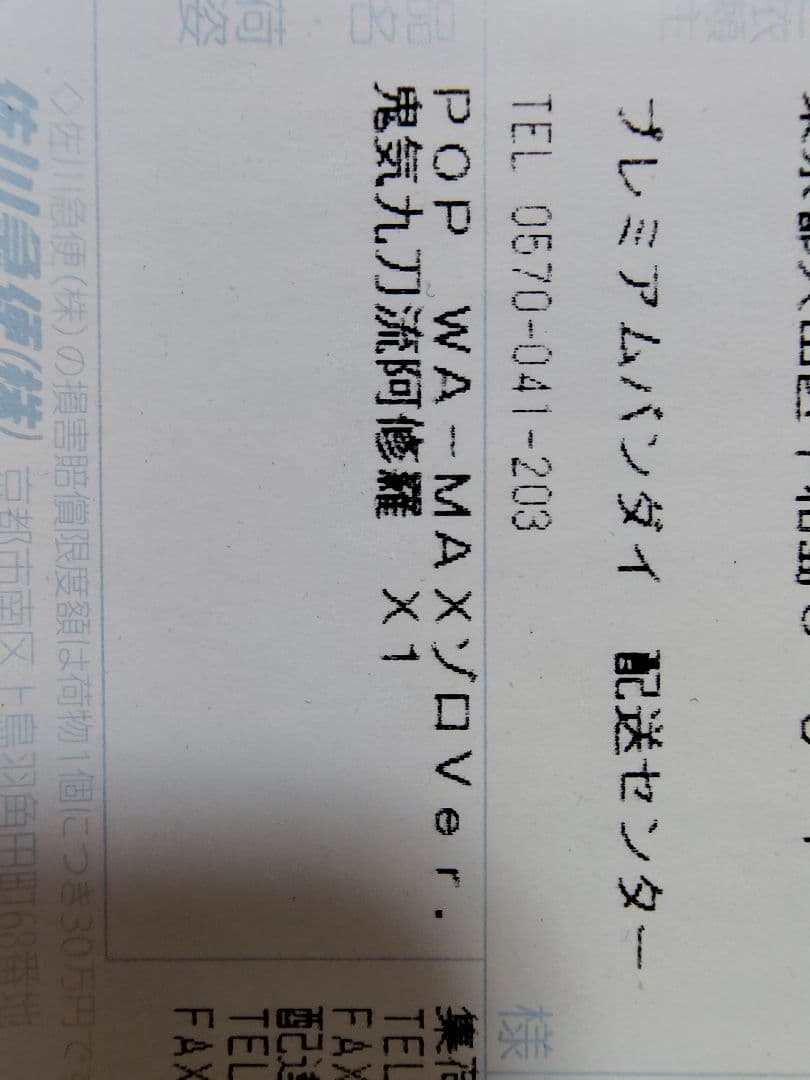 プレミアムバンダイ 配送センター
TEL 0570-041-203
様
品名
荷姿
POP WA-MAXゾロVer.
鬼気九刀流阿修羅 X1
集荷
TEL
FAX
配達
TEL
FAX
◇佐川急便(株)の損害賠償限度額は荷物1個につき30万円で
佐川急便(株) 京都市南区上鳥羽角田町68番地